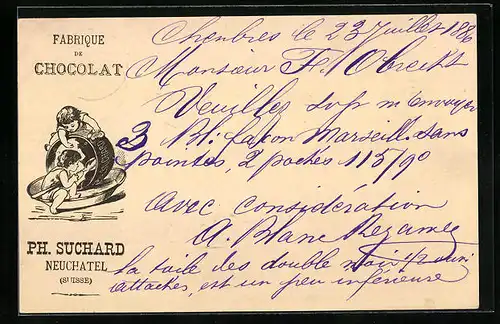 FABRIQUE
DE
CHOCOLAT
PH. SUCHARD
NEUCHATEL
(SUISSE)
Chexbres le 23 Juillet 188
Monsieur F.
Veuilles svp m'envoyer
3 façon Marseill. sans
pointes, 2 pochés 115/90
avec considération
A. Blanc
la toile des double
attachés, est un peu inférieure